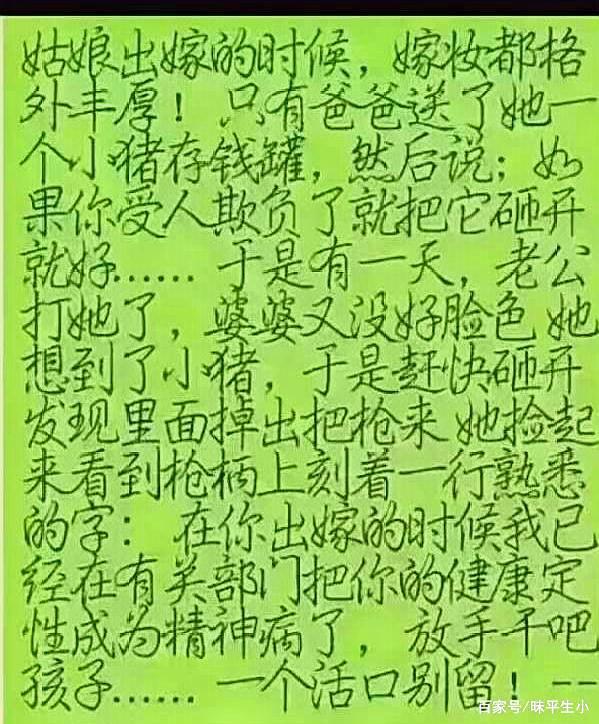 姑娘出嫁的时候，嫁妆都格
外丰厚！只有爸爸送了她一
个小猪存钱罐，然后说；如
果你受人欺负了就把它砸开
就好……于是有一天，老公
打她了，婆婆又没好脸色她
想到了小猪，于是赶快砸开
发现里面掉出把枪来她捡起
来看到枪柄上刻着一行熟悉
的字：在你出嫁的时候我已
经在有关部门把你的健康定
性成为精神病了，放手干吧
孩子……一个活口别留！--
百家号/昧平生小